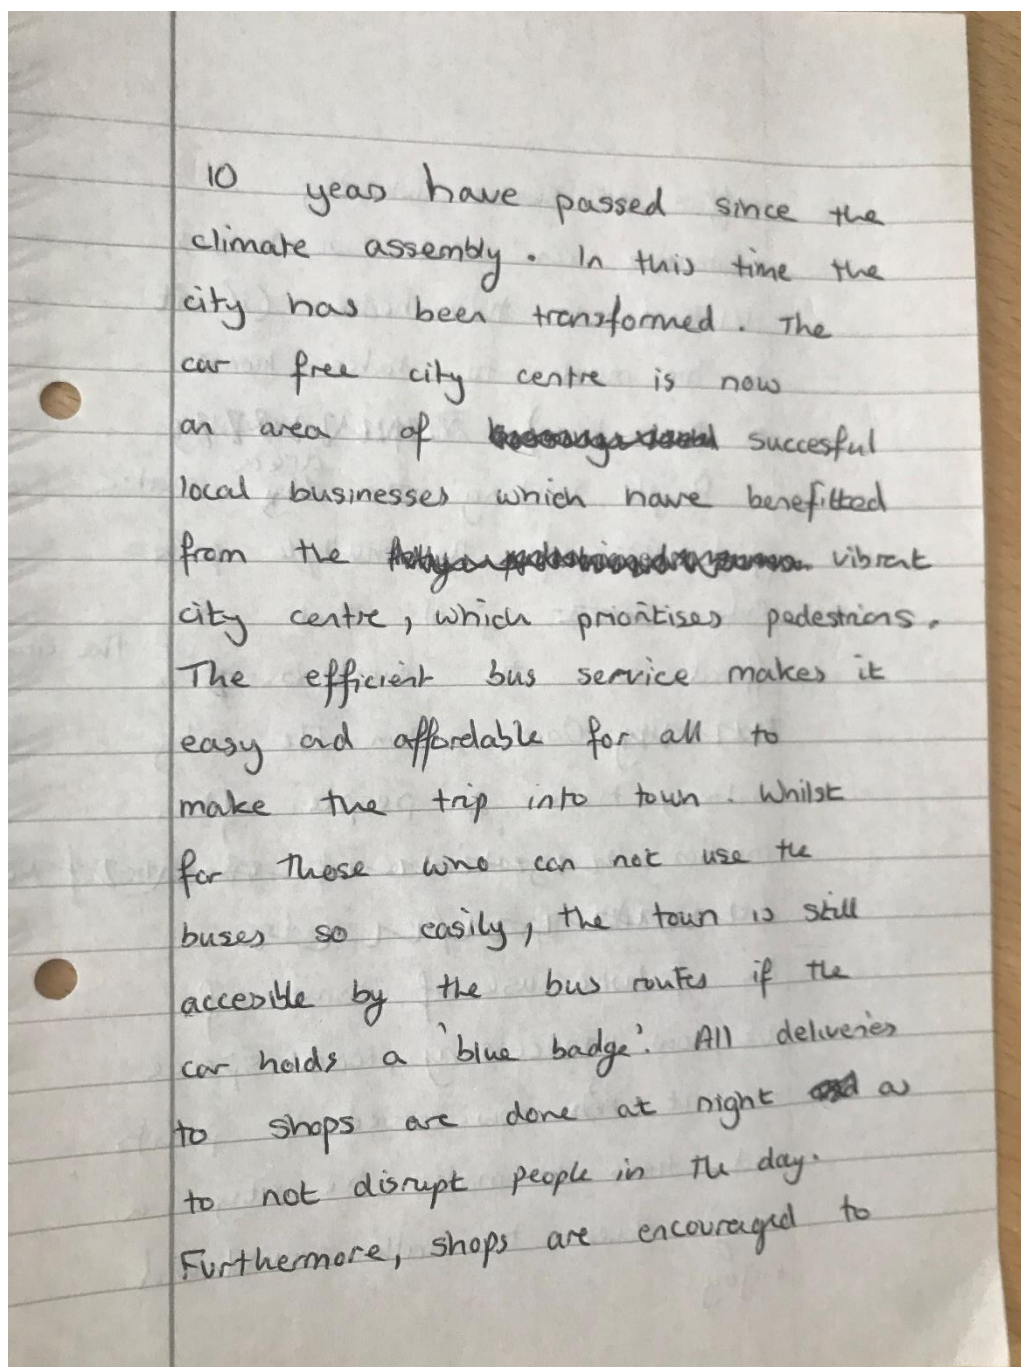 10 years have passed since the
climate assembly. In this time the
city has been transformed. The
car free city centre is now
an area of succesful
local businesses which have benefitted
from the vibrant
city centre, which prioritises pedestrians.
The efficient bus service makes it
easy and affordable for all to
make the trip into town. Whilst
for those who can not use the
buses so easily, the town is still
accesible by the bus routes if the
car holds a 'blue badge'. All deliveries
to shops are done at night as
to not disrupt people in the day.
Furthermore, shops are encouraged to